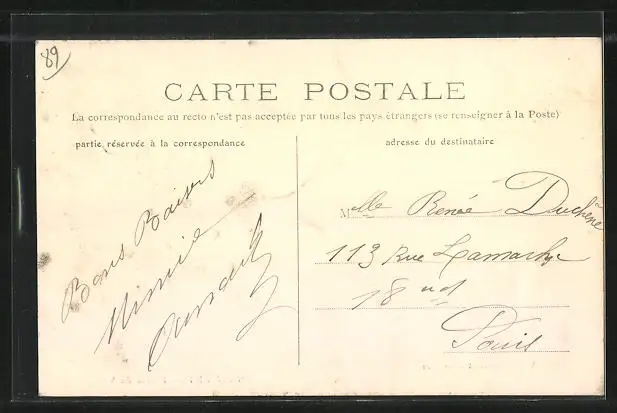 89
CARTE POSTALE
La correspondance au recto n'est pas acceptée par tous les pays étrangers (se renseigner à la Poste)
partie réservée à la correspondance
adresse du destinataire
Bons Baisers
Mimie
Mlle Renée Duchêne
113 Rue Lamarck
18
Paris